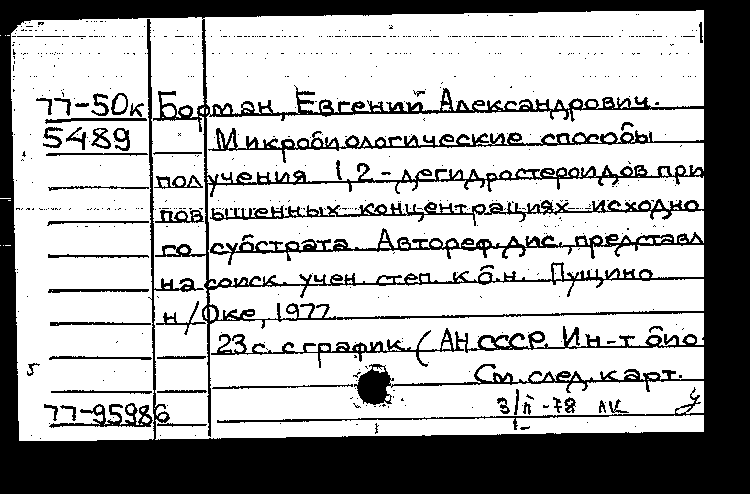 77-50к Борман, Евгений Александрович.
5489 Микробиологические способы
получения 1,2-дегидростероидов при
повышенных концентрациях исходно
го субстрата. Автореф. дис., представл
на соиск. учен. степ. к.б.н. Пущино
н/Оке, 1977
23 с. с график. (АН СССР. Ин-т био-
См. след. карт.
77-95986 3/II-78 ЛК